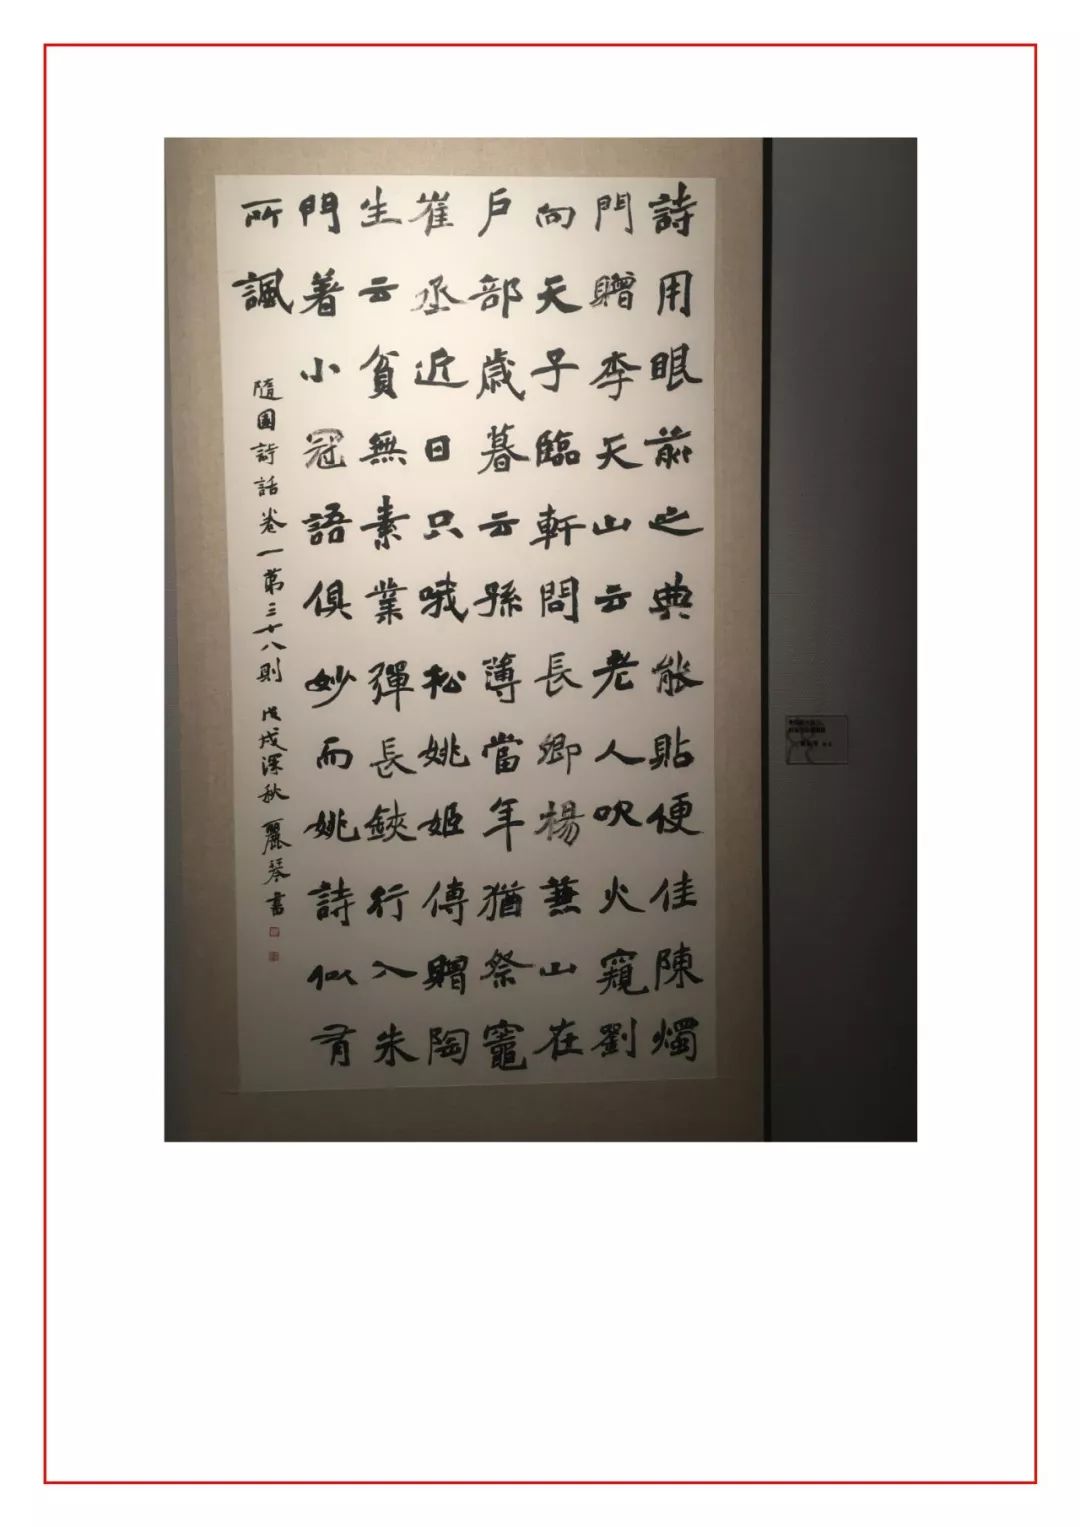 詩用眼前之典能貼便佳陳燭
門贈李天山云老人吹火窺劉
向天子臨軒問長卿楊兼山在
户部歳暮云孫薄當年猶祭竈
崔丞近日只哦松姚姬傳贈陶
生云貧無素業彈長鋏行入朱
門著小冠語俱妙而姚詩似有
所諷
隨園詩話卷一第三十八則 戊戌深秋 麗琴書